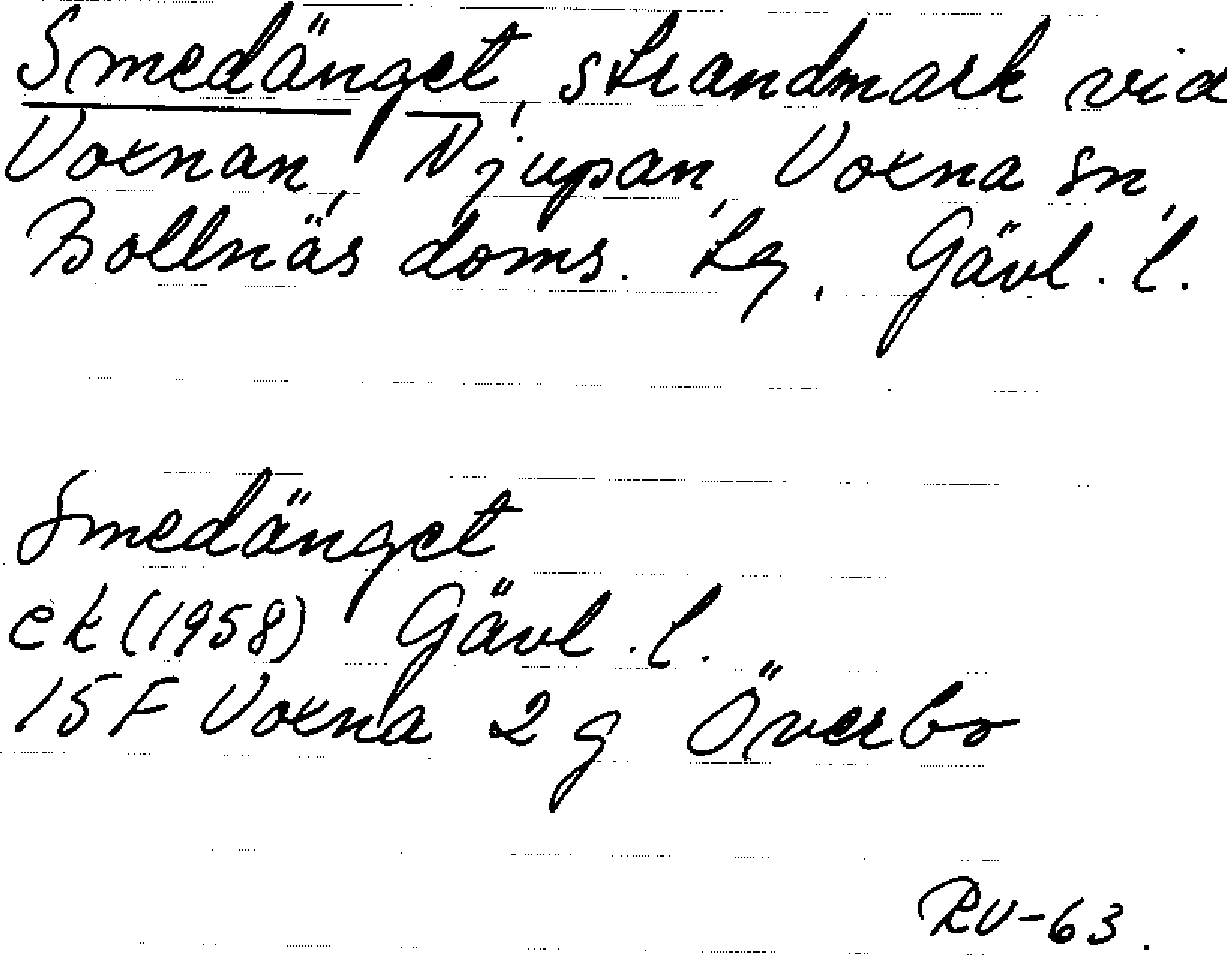 Smedänget, strandmark vid
Voxnan, Njupan, Voxna sn,
Bollnäs doms. Lg, Gävl. l.
Smedänget
ek (1958) Gävl. l.
15F Voxna 2g Överbo
RV-63.